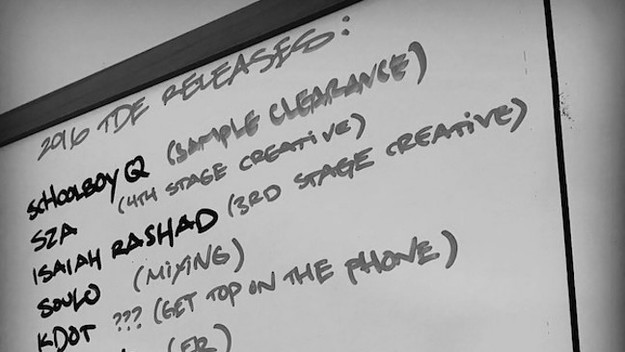 2016 TDE RELEASES:
SCHOOLBOY Q (SAMPLE CLEARANCE)
SZA (4TH STAGE CREATIVE)
ISAIAH RASHAD (3RD STAGE CREATIVE)
SOULO (MIXING)
KDOT ??? (GET TOP ON THE PHONE)